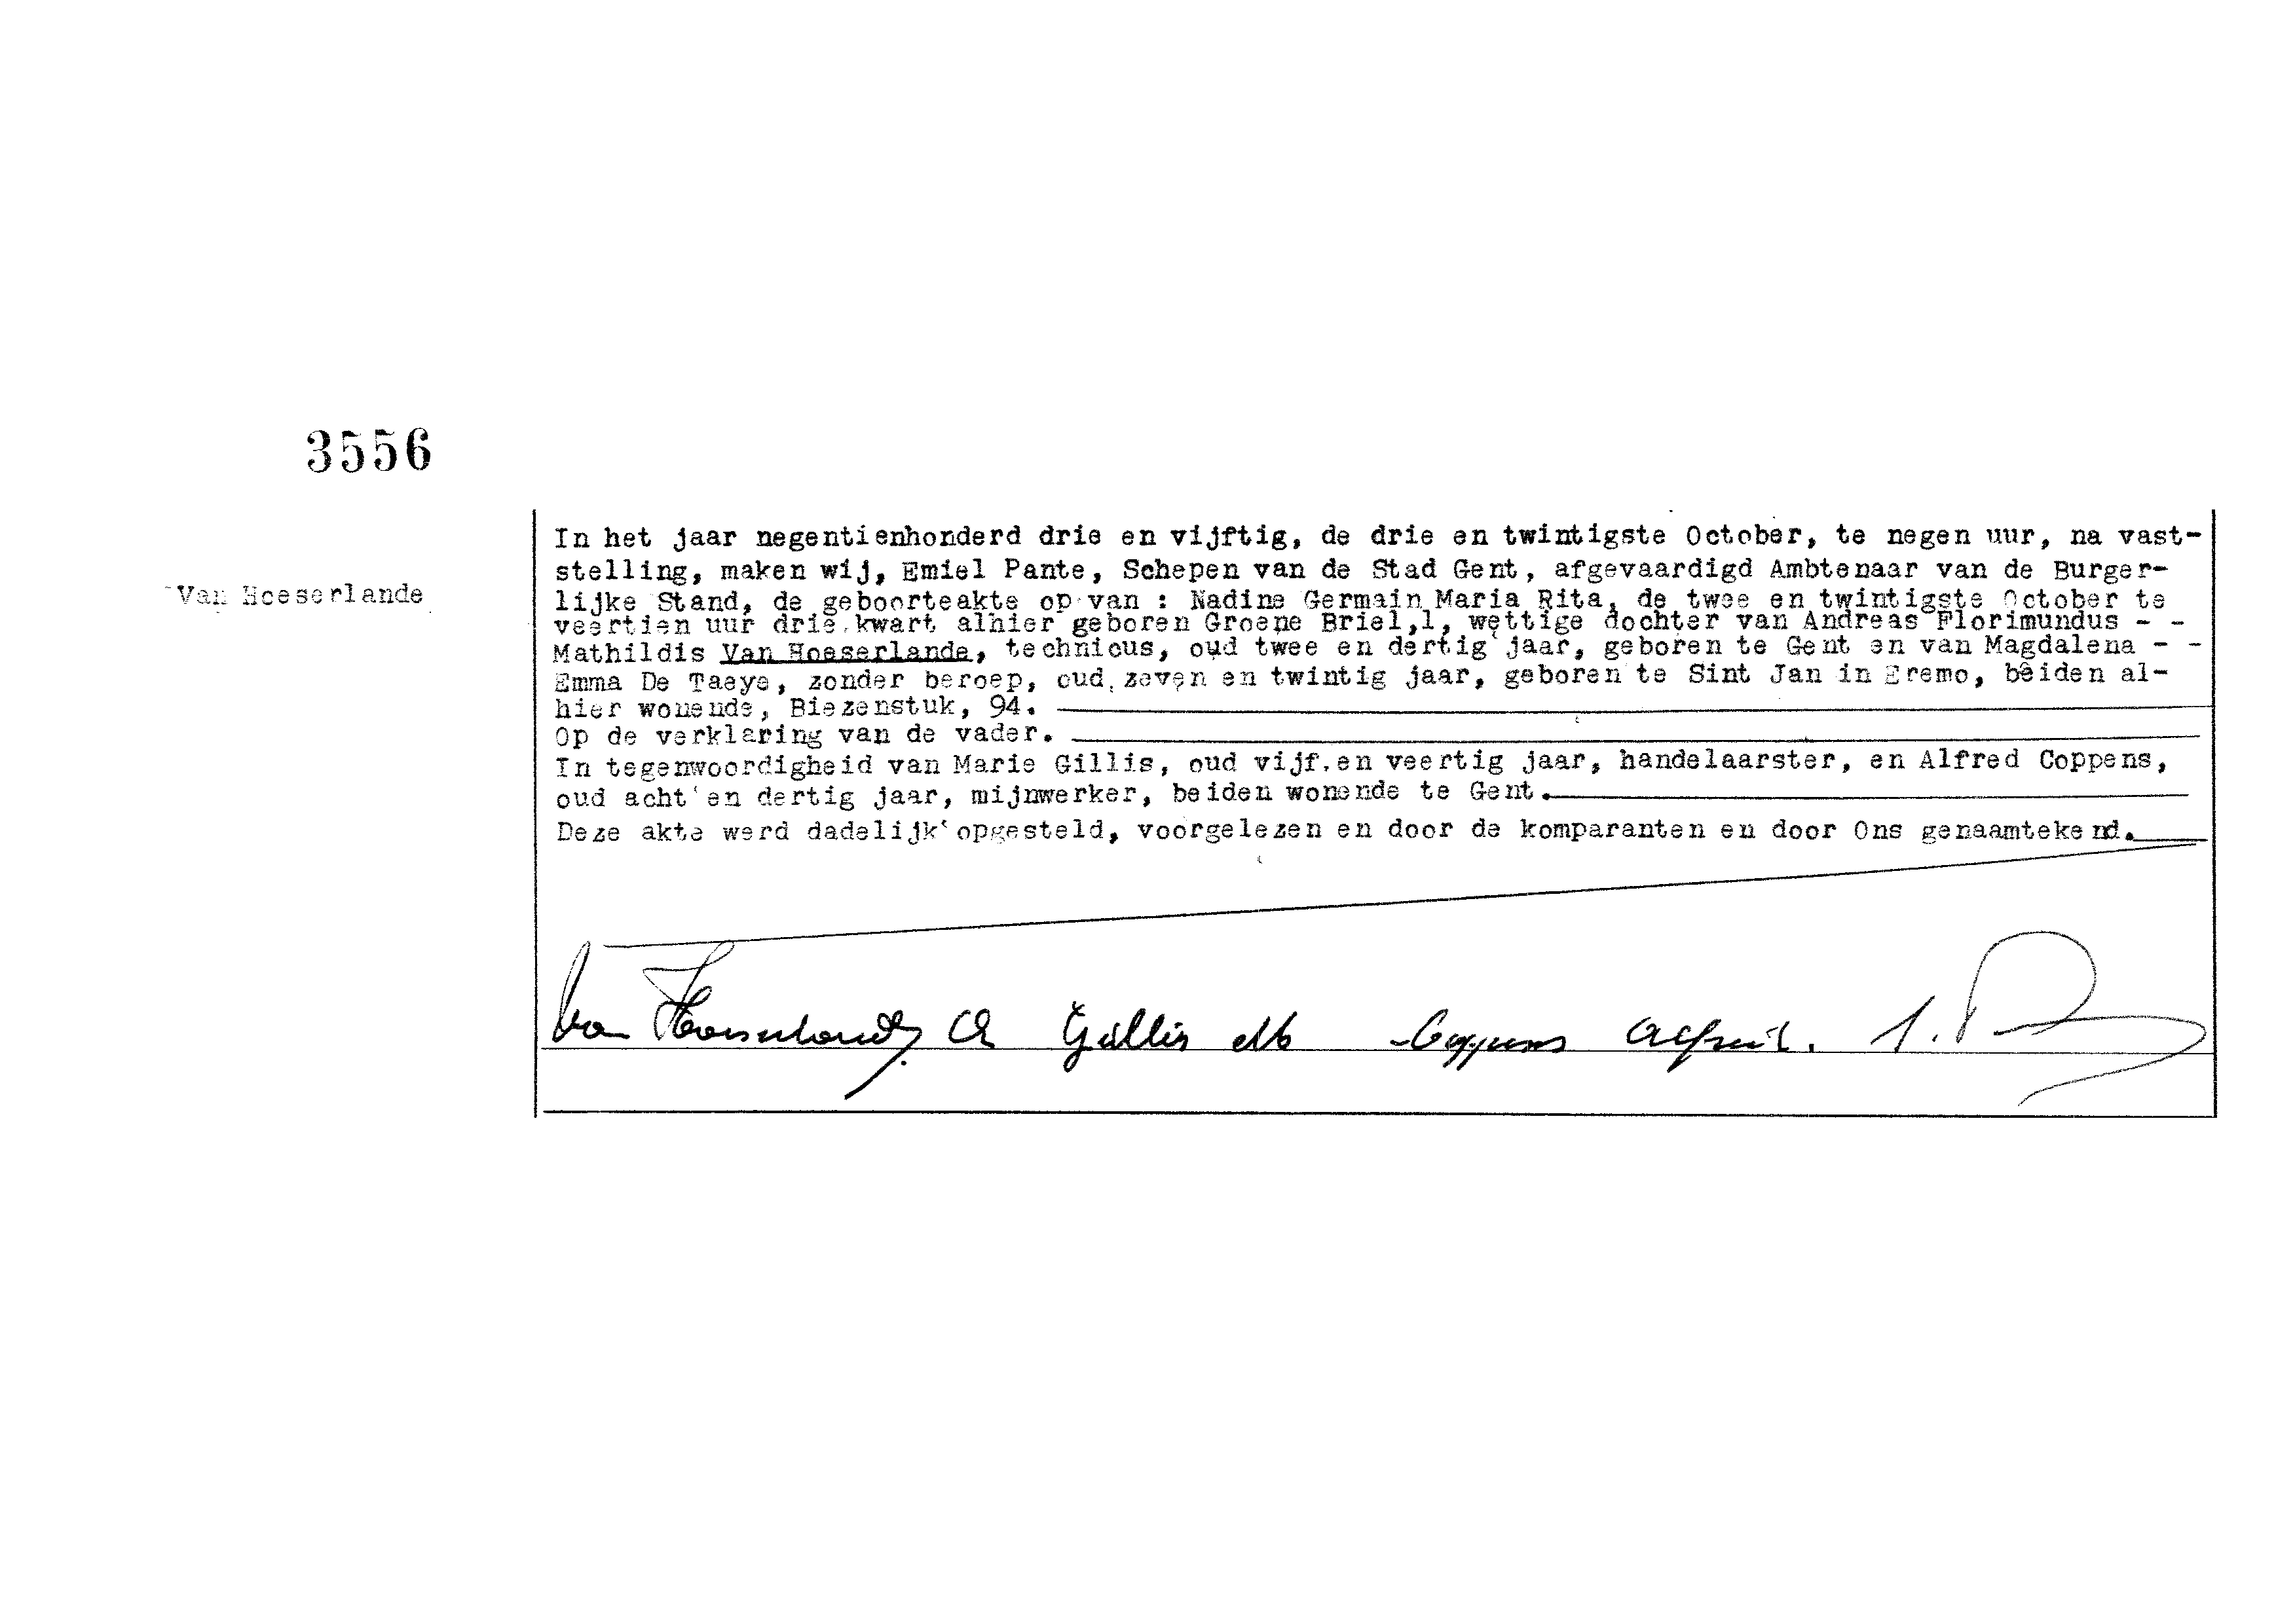 3556
Van Hoeserlande
In het jaar negentienhonderd drie en vijftig, de drie en twintigste October, te negen uur, na vast-
stelling, maken wij, Emiel Pante, Schepen van de Stad Gent, afgevaardigd Ambtenaar van de Burger-
lijke Stand, de geboorteakte op van : Nadine Germain Maria Rita, de twee en twintigste October te
veertien uur drie kwart alhier geboren Groene Briel,1, wettige dochter van Andreas Florimundus - -
Mathildis Van Hoeserlande, technicus, oud twee en dertig jaar, geboren te Gent en van Magdalena - -
Emma De Taeye, zonder beroep, oud zeven en twintig jaar, geboren te Sint Jan in Eremo, beiden al-
hier wonende, Biezenstuk, 94.
Op de verklaring van de vader.
In tegenwoordigheid van Marie Gillis, oud vijf en veertig jaar, handelaarster, en Alfred Coppens,
oud acht en dertig jaar, mijnwerker, beiden wonende te Gent.
Deze akte werd dadelijk opgesteld, voorgelezen en door de komparanten en door Ons genaamtekend.
Van Gillis M Coppens Alfred.